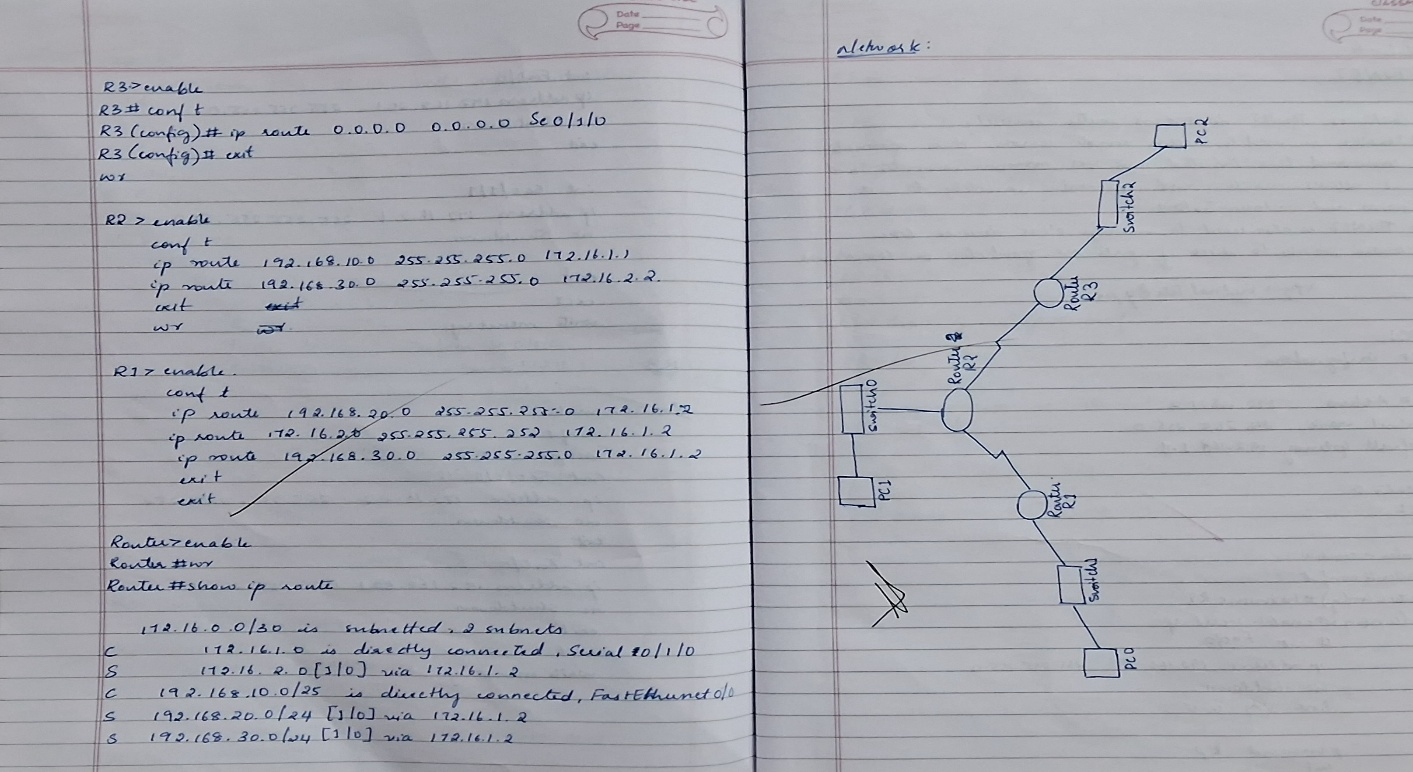 Date
Page
R3>enable
R3# conf t
R3 (config)# ip route 0.0.0.0 0.0.0.0 Se0/1/0
R3 (config)# exit
wr
R2 > enable
conf t
ip route 192.168.10.0 255.255.255.0 172.16.1.1
ip route 192.168.30.0 255.255.255.0 172.16.2.2.
exit exit
wr wr
R1 > enable.
conf t
ip route 192.168.20.0 255.255.255.0 172.16.1.2
ip route 172.16.2.0 255.255.255.252 172.16.1.2
ip route 192.168.30.0 255.255.255.0 172.16.1.2
exit
exit
Router>enable
Router #wr
Router #show ip route
172.16.0.0/30 is subnetted, 2 subnets
C 172.16.1.0 is directly connected, Serial 0/1/0
S 172.16.2.0 [1/0] via 172.16.1.2
C 192.168.10.0/25 is directly connected, FastEthernet0/0
S 192.168.20.0/24 [1/0] via 172.16.1.2
S 192.168.30.0/24 [1/0] via 172.16.1.2
Date
Page
network:
PC2
Switch2
Router
R3
Router
R2
Switch0
PC1
Router
R1
Switch1
PC0